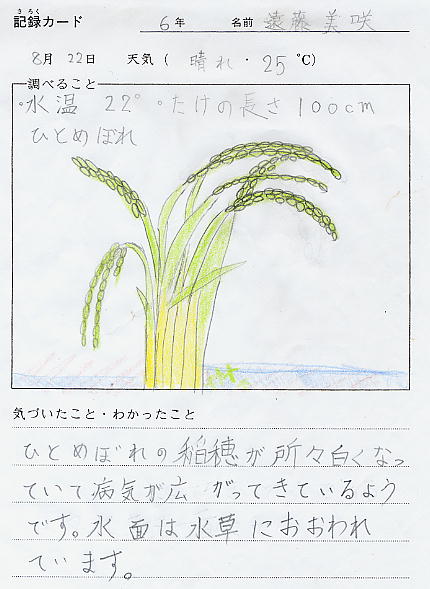 きろく
記録カード 6年 名前 遠藤美咲
8月 22日 天気( 晴れ ・ 25 ℃)
調べること
・水温 22° ・たけの長さ 100cm
ひとめぼれ
気づいたこと・わかったこと
ひとめぼれの稲穂が所々白くなっ
ていて病気が広がってきているよう
です。水面は水草におおわれ
ています。